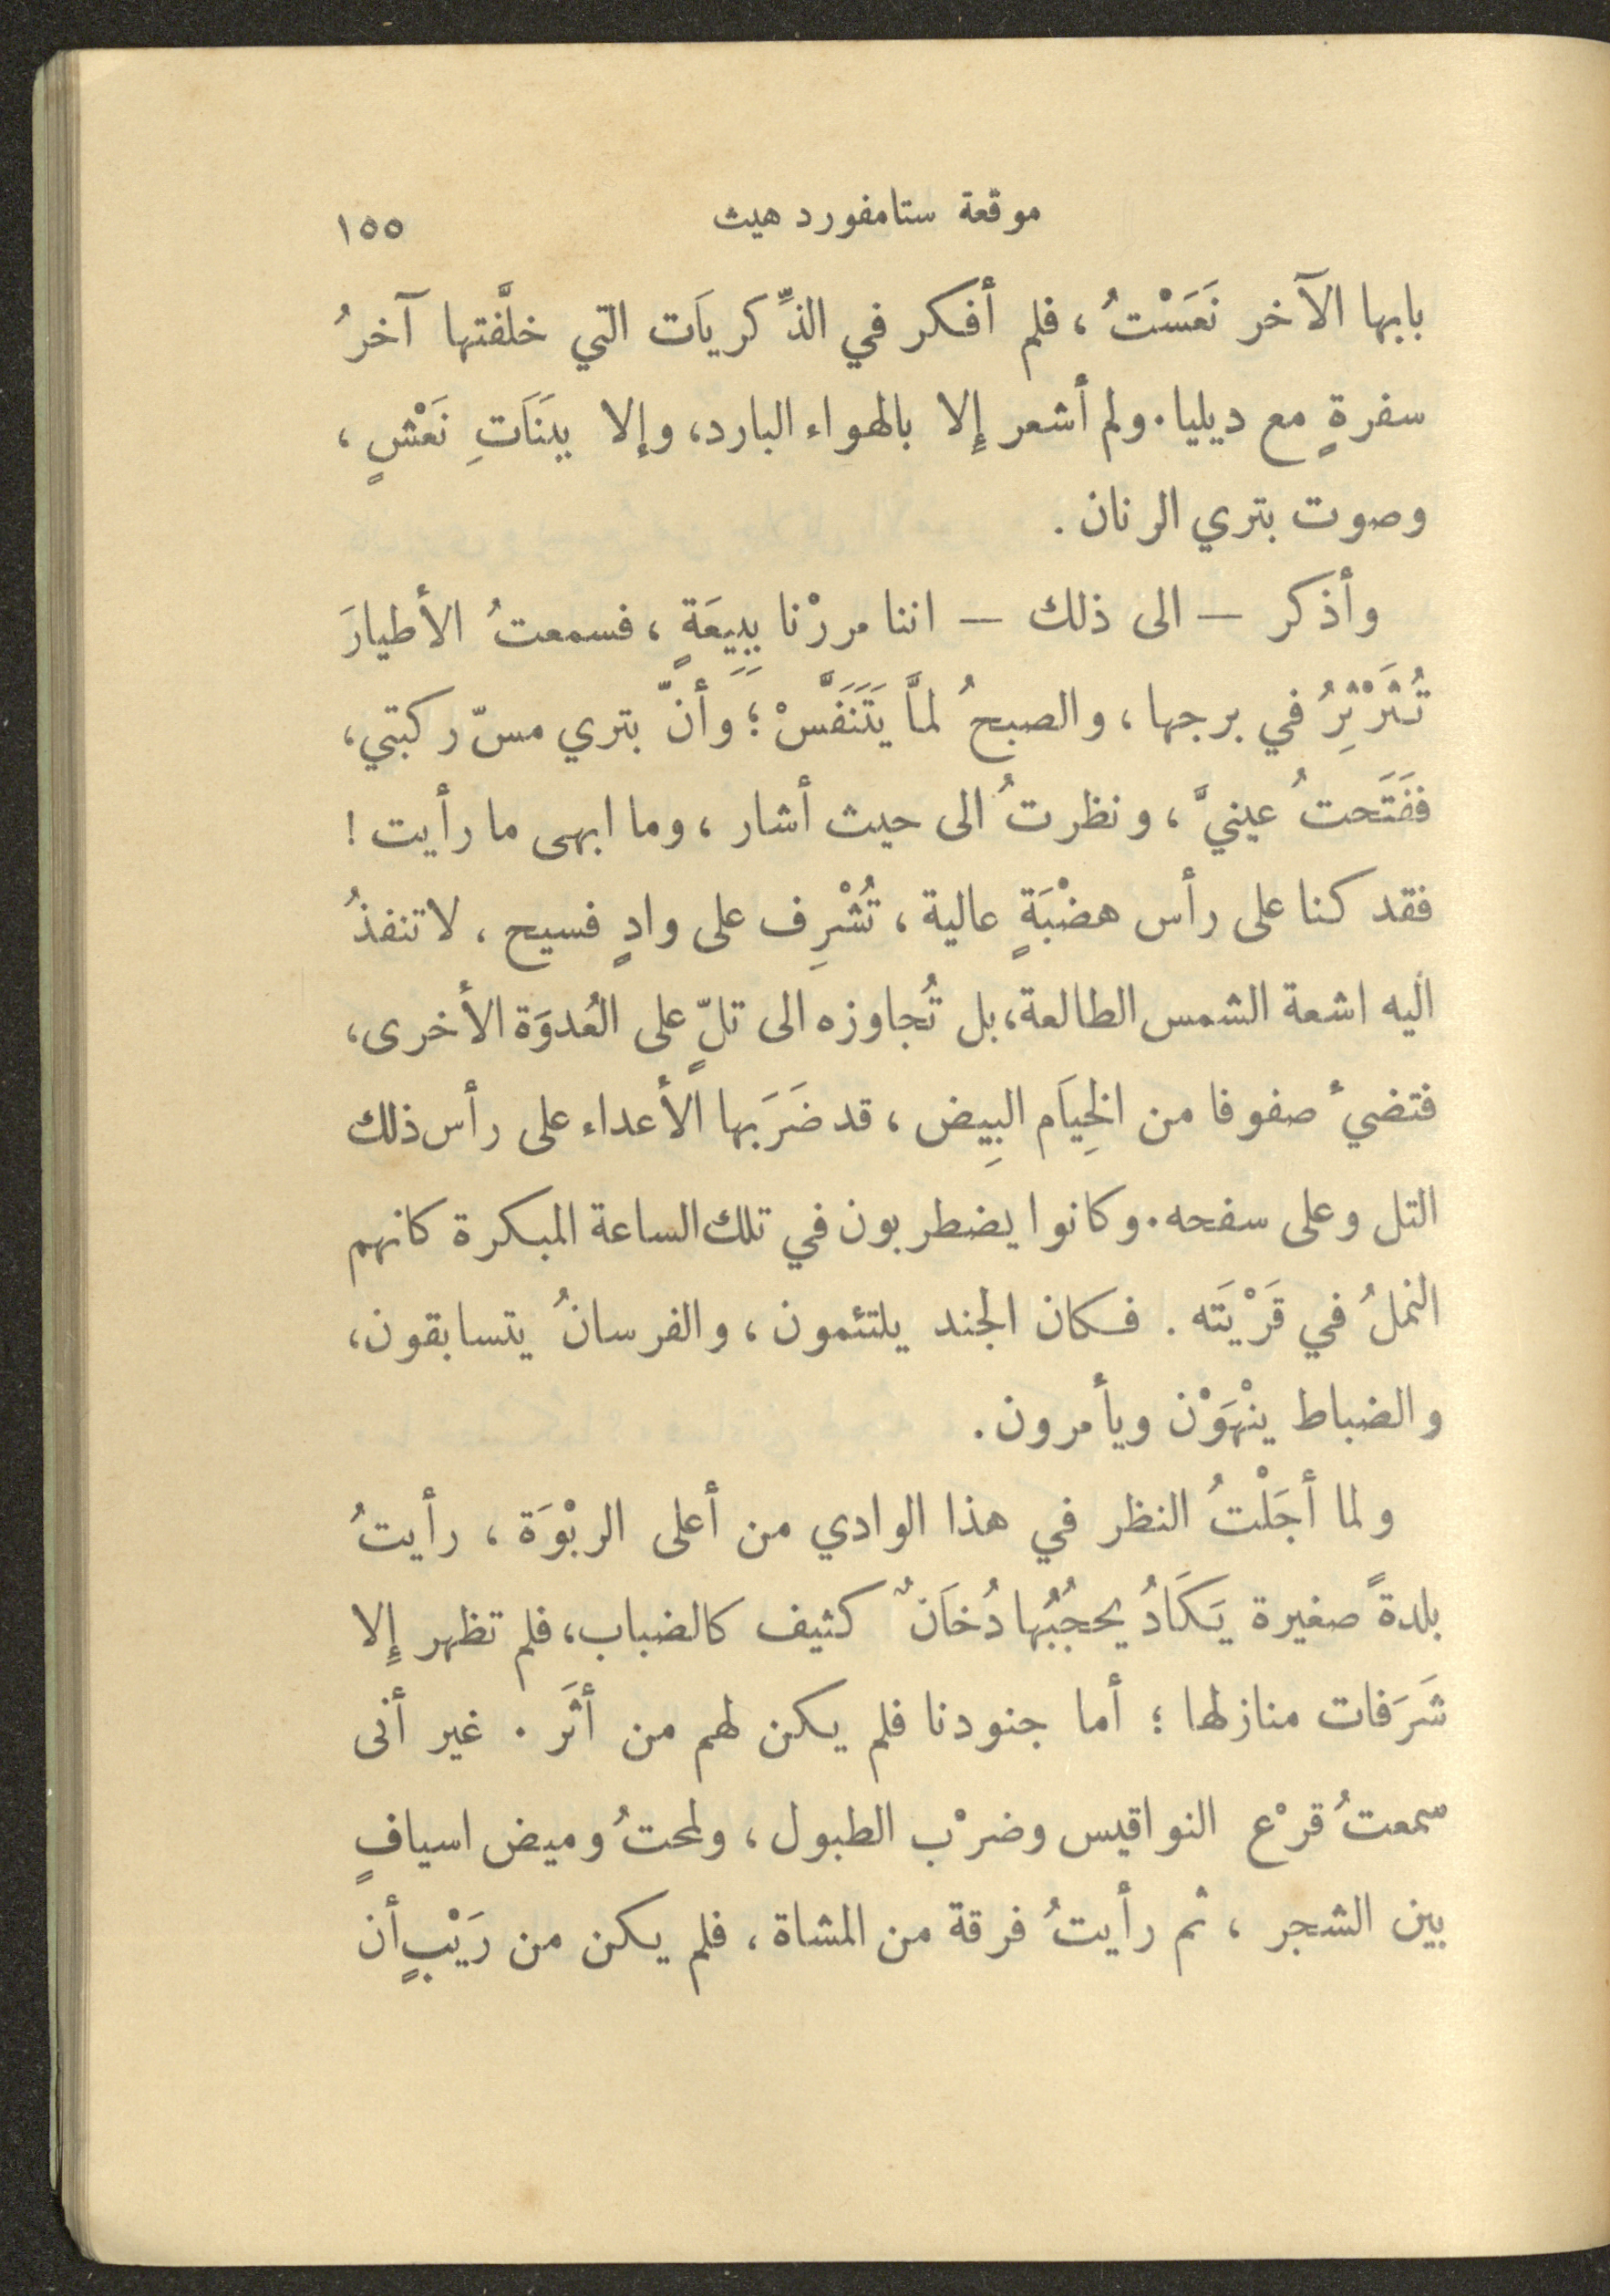 موقعة ستامفورد هيث ١٥٥
بابها الآخر نَعَسْتُ ، فلم أفكر في الذِّكريَات التي خلَّفتها آخرُ
سفرةٍ مع ديليا . ولم أشعر إِلا بالهواء البارد ، وإلا بِبَنَاتِ نَعْشٍ ،
وصوت بتري الرنان .
وأذكر — الى ذلك — اننا مررْنا بِبِيعَةٍ ، فسمعتُ الأطيارَ
تُثَرْثِرُ في برجها ، والصبحُ لمَّا يَتَنَفَّسْ ؛ وأنّ بتري مسّ ركبتي ،
فَفَتَحتُ عينيَّ ، ونظرتُ الى حيث أشار ، وما ابهى ما رأيت !
فقد كنا على رأس هضْبَةٍ عالية ، تُشْرِف على وادٍ فسيح ، لا تنفذُ
اليه اشعة الشمس الطالعة ، بل تُجاوزه الى تلٍّ على العُدوَة الأخرى ،
فتضيُ صفوفا من الخِيَام البِيض ، قد ضَرَبها الأعداء على رأس ذلك
التل وعلى سفحه . وكانوا يضطربون في تلك الساعة المبكرة كانهم
النملُ في قَرْيَتَه . فكان الجند يلتئمون ، والفرسانُ يتسابقون ،
والضباط ينْهَوْن ويأمرون .
ولما أجَلْتُ النظر في هذا الوادي من أعلى الربْوَة ، رأيتُ
بلدةً صغيرة يَكَادُ يحجُبُها دُخَانٌ كثيف كالضباب ، فلم تظهر إِلا
شَرَفات منازلها ؛ أما جنودنا فلم يكن لهم من أثَر . غير أنى
سمعتُ قرْع النواقيس وضرْب الطبول ، ولمحتُ وميض اسيافٍ
بين الشجر ، ثم رأيتُ فرقة من المشاة ، فلم يكن من رَيْبٍ أن